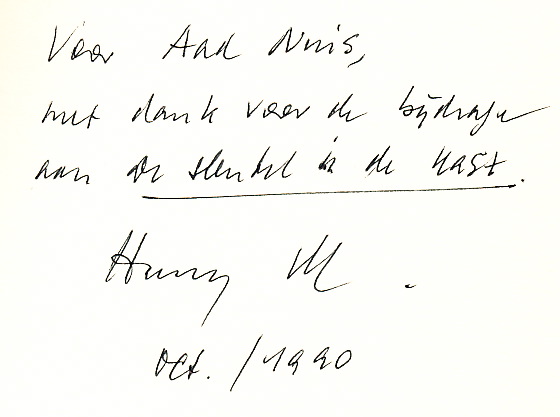 Voor Aad Nuis,
met dank voor de bijdrage
aan De sleutel in de kast.
Harry M.
oct. / 1990